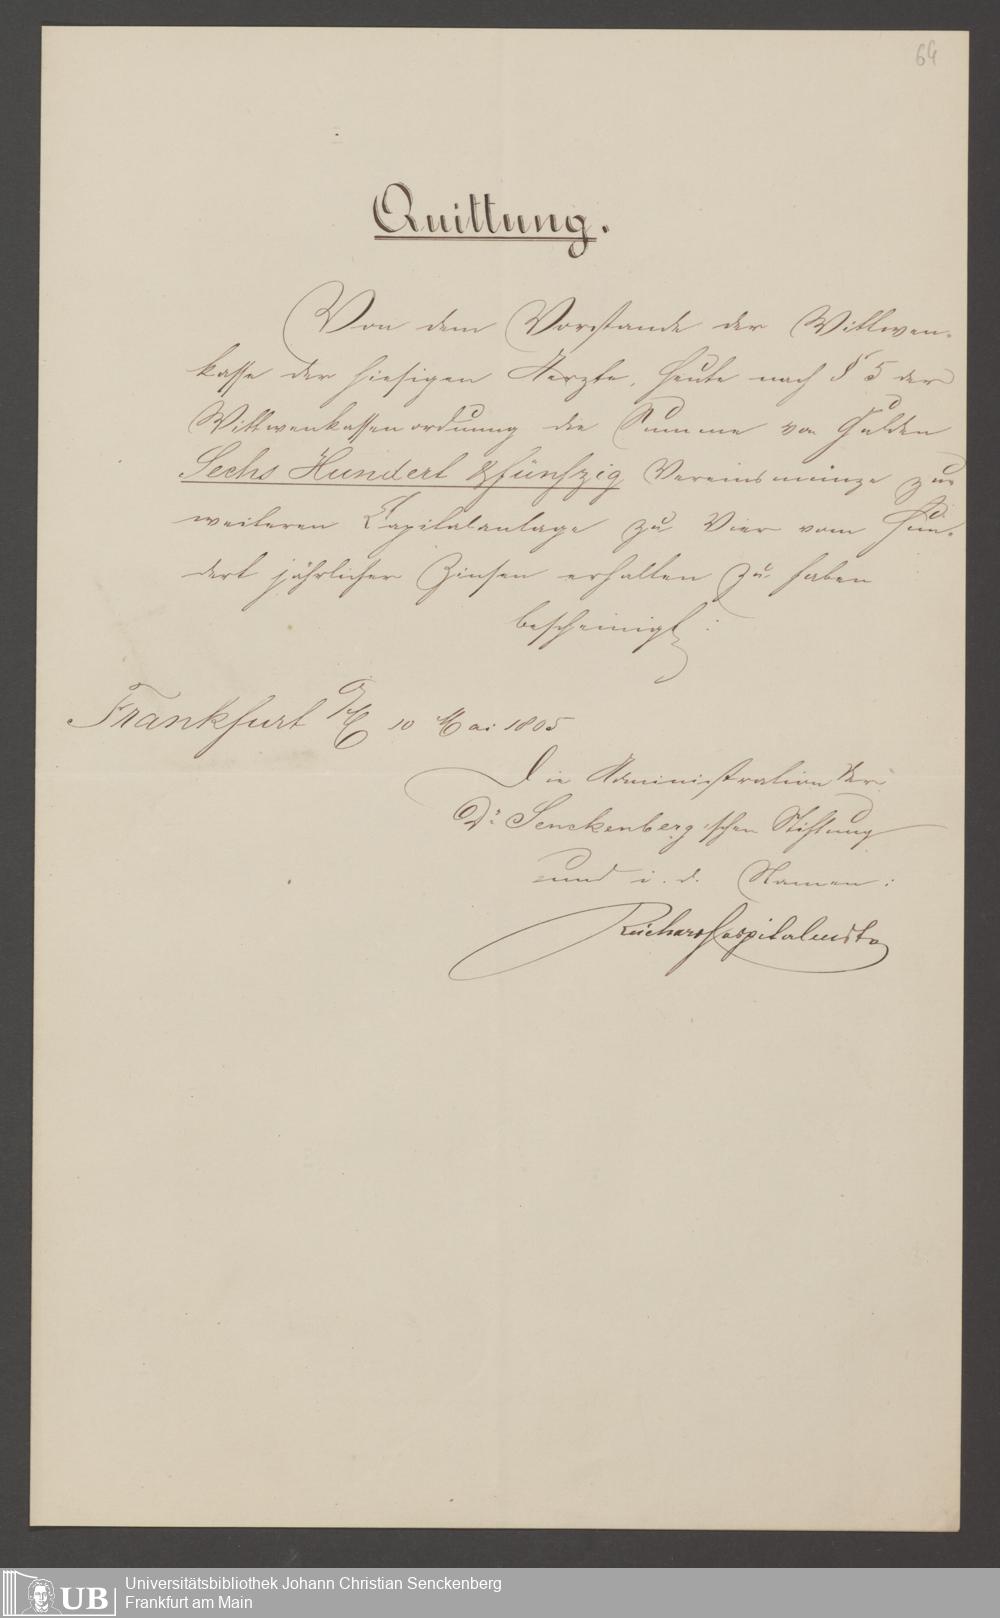 64
Quittung.
Von dem Vorstande der Wittwen-
kasse der hiesigen Aerzte, heute nach § 5 der
Wittwenkassenordnung die Summe von Gulden
Sechs Hundert & fünfzig Vereinsmünze zur
weiteren Capitalanlage zu Vier vom Hun-
dert jährlicher Zinsen erhalten zu haben
bescheinigt:
Frankfurt a/M 10 Mai 1865
Die Administration der
Dr. Senckenberg'schen Stiftung
und i. d. Namen:
Reichard
UB
Universitätsbibliothek Johann Christian Senckenberg
Frankfurt am Main